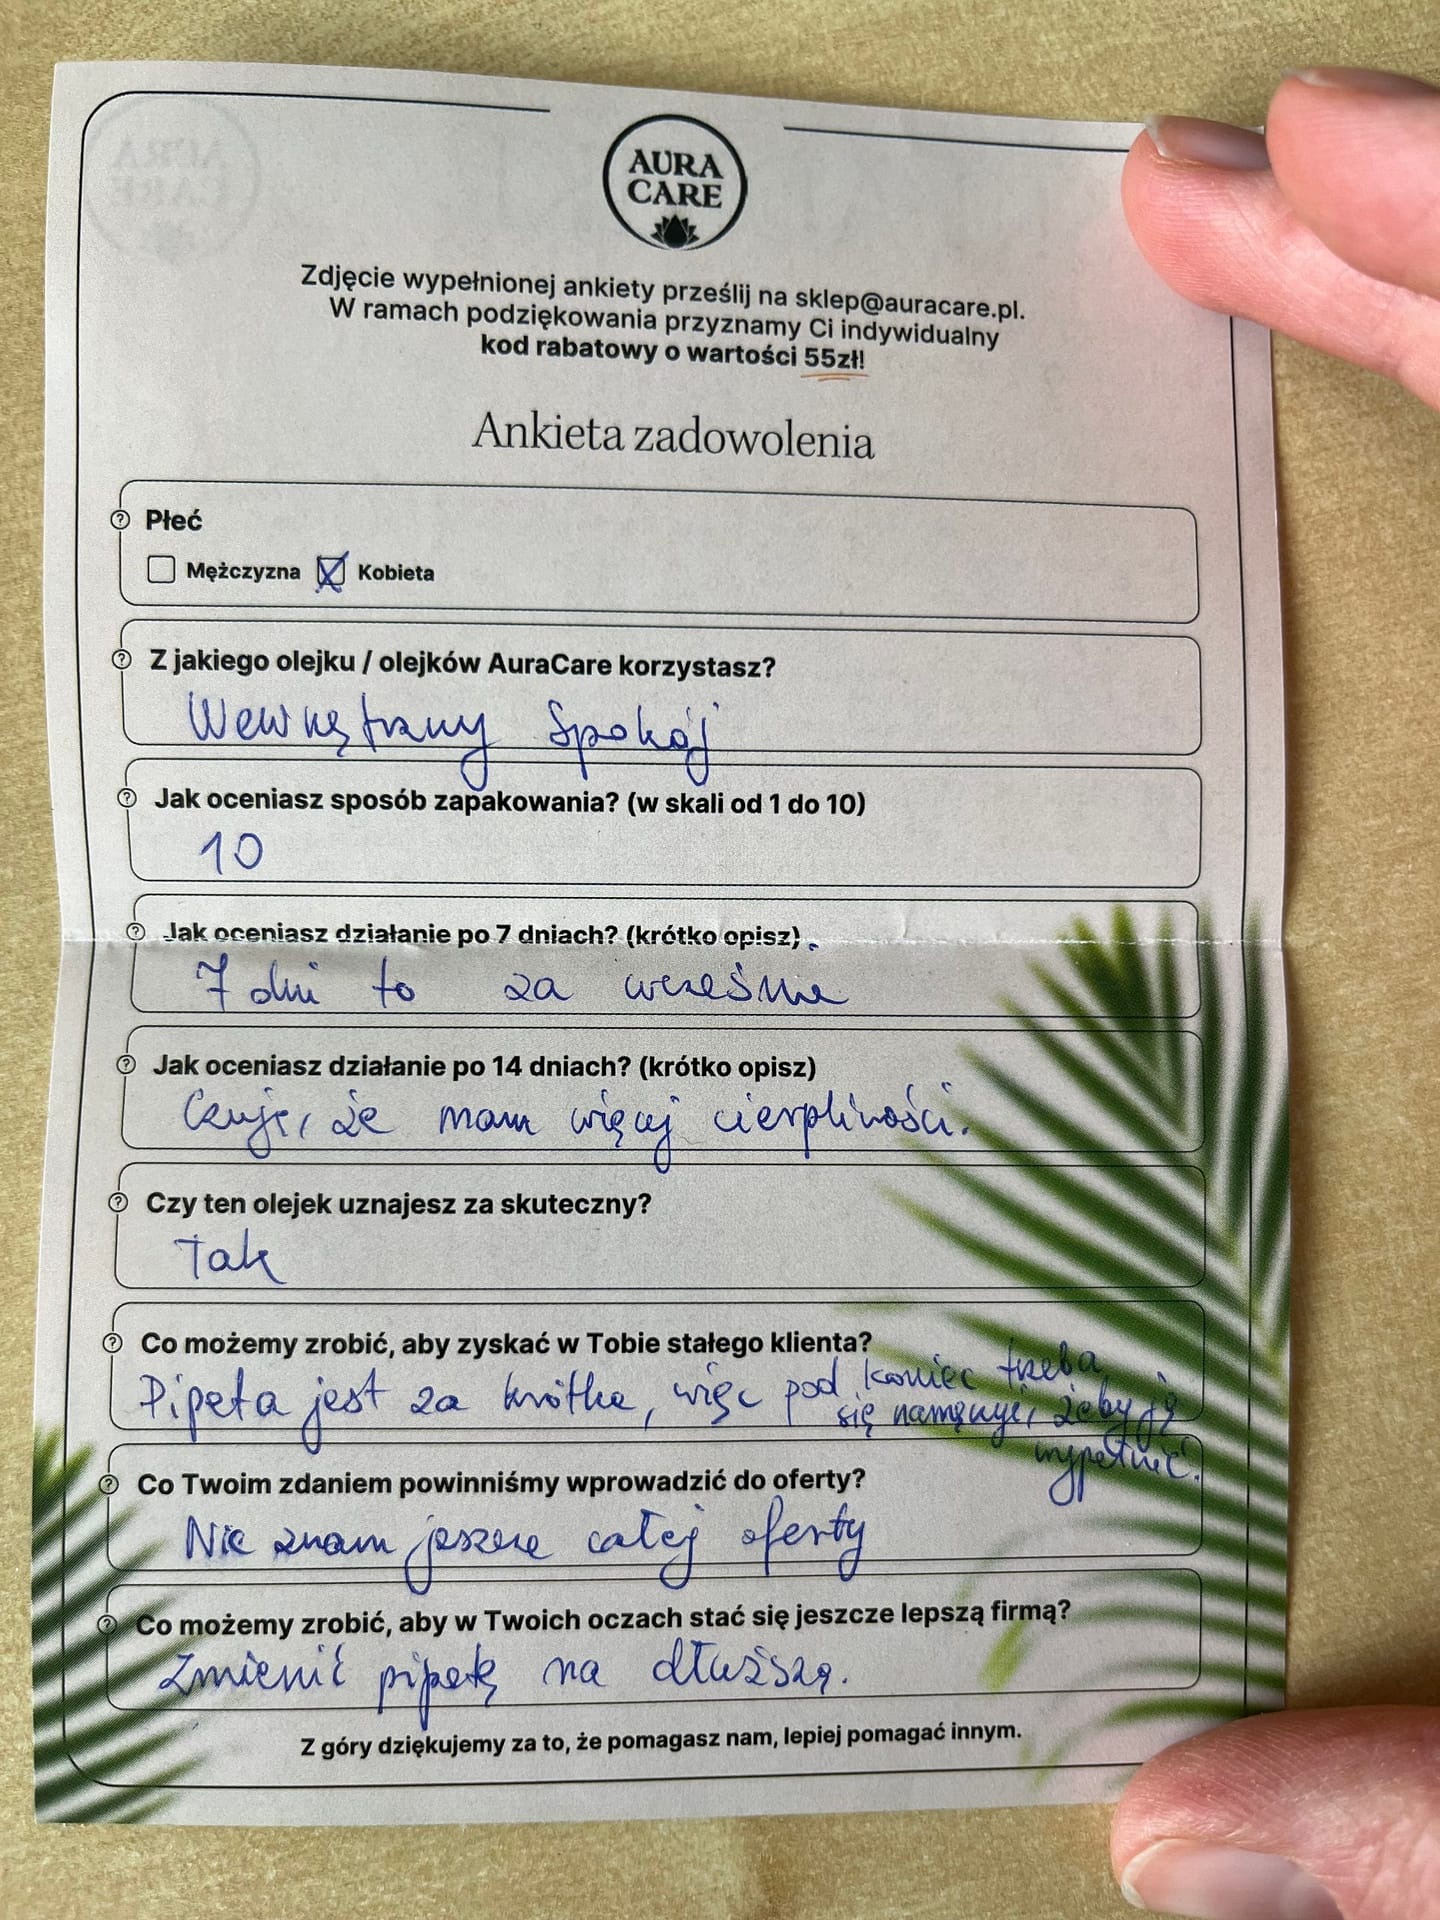 AURA
CARE
Zdjęcie wypełnionej ankiety prześlij na sklep@auracare.pl.
W ramach podziękowania przyznamy Ci indywidualny
kod rabatowy o wartości 55zł!
Ankieta zadowolenia
Płeć
Mężczyzna Kobieta
Z jakiego olejku / olejków AuraCare korzystasz?
Wewnętrzny Spokój
Jak oceniasz sposób zapakowania? (w skali od 1 do 10)
10
Jak oceniasz działanie po 7 dniach? (krótko opisz)
7 dni to za wcześnie
Jak oceniasz działanie po 14 dniach? (krótko opisz)
Czuję, że mam więcej cierpliwości.
Czy ten olejek uznajesz za skuteczny?
Tak
Co możemy zrobić, aby zyskać w Tobie stałego klienta?
Pipeta jest za krótka, więc pod koniec trzeba
się namęczyć, żeby ją
wypełnić.
Co Twoim zdaniem powinniśmy wprowadzić do oferty?
Nie znam jeszcze całej oferty
Co możemy zrobić, aby w Twoich oczach stać się jeszcze lepszą firmą?
Zmienić pipetę na dłuższą.
Z góry dziękujemy za to, że pomagasz nam, lepiej pomagać innym.